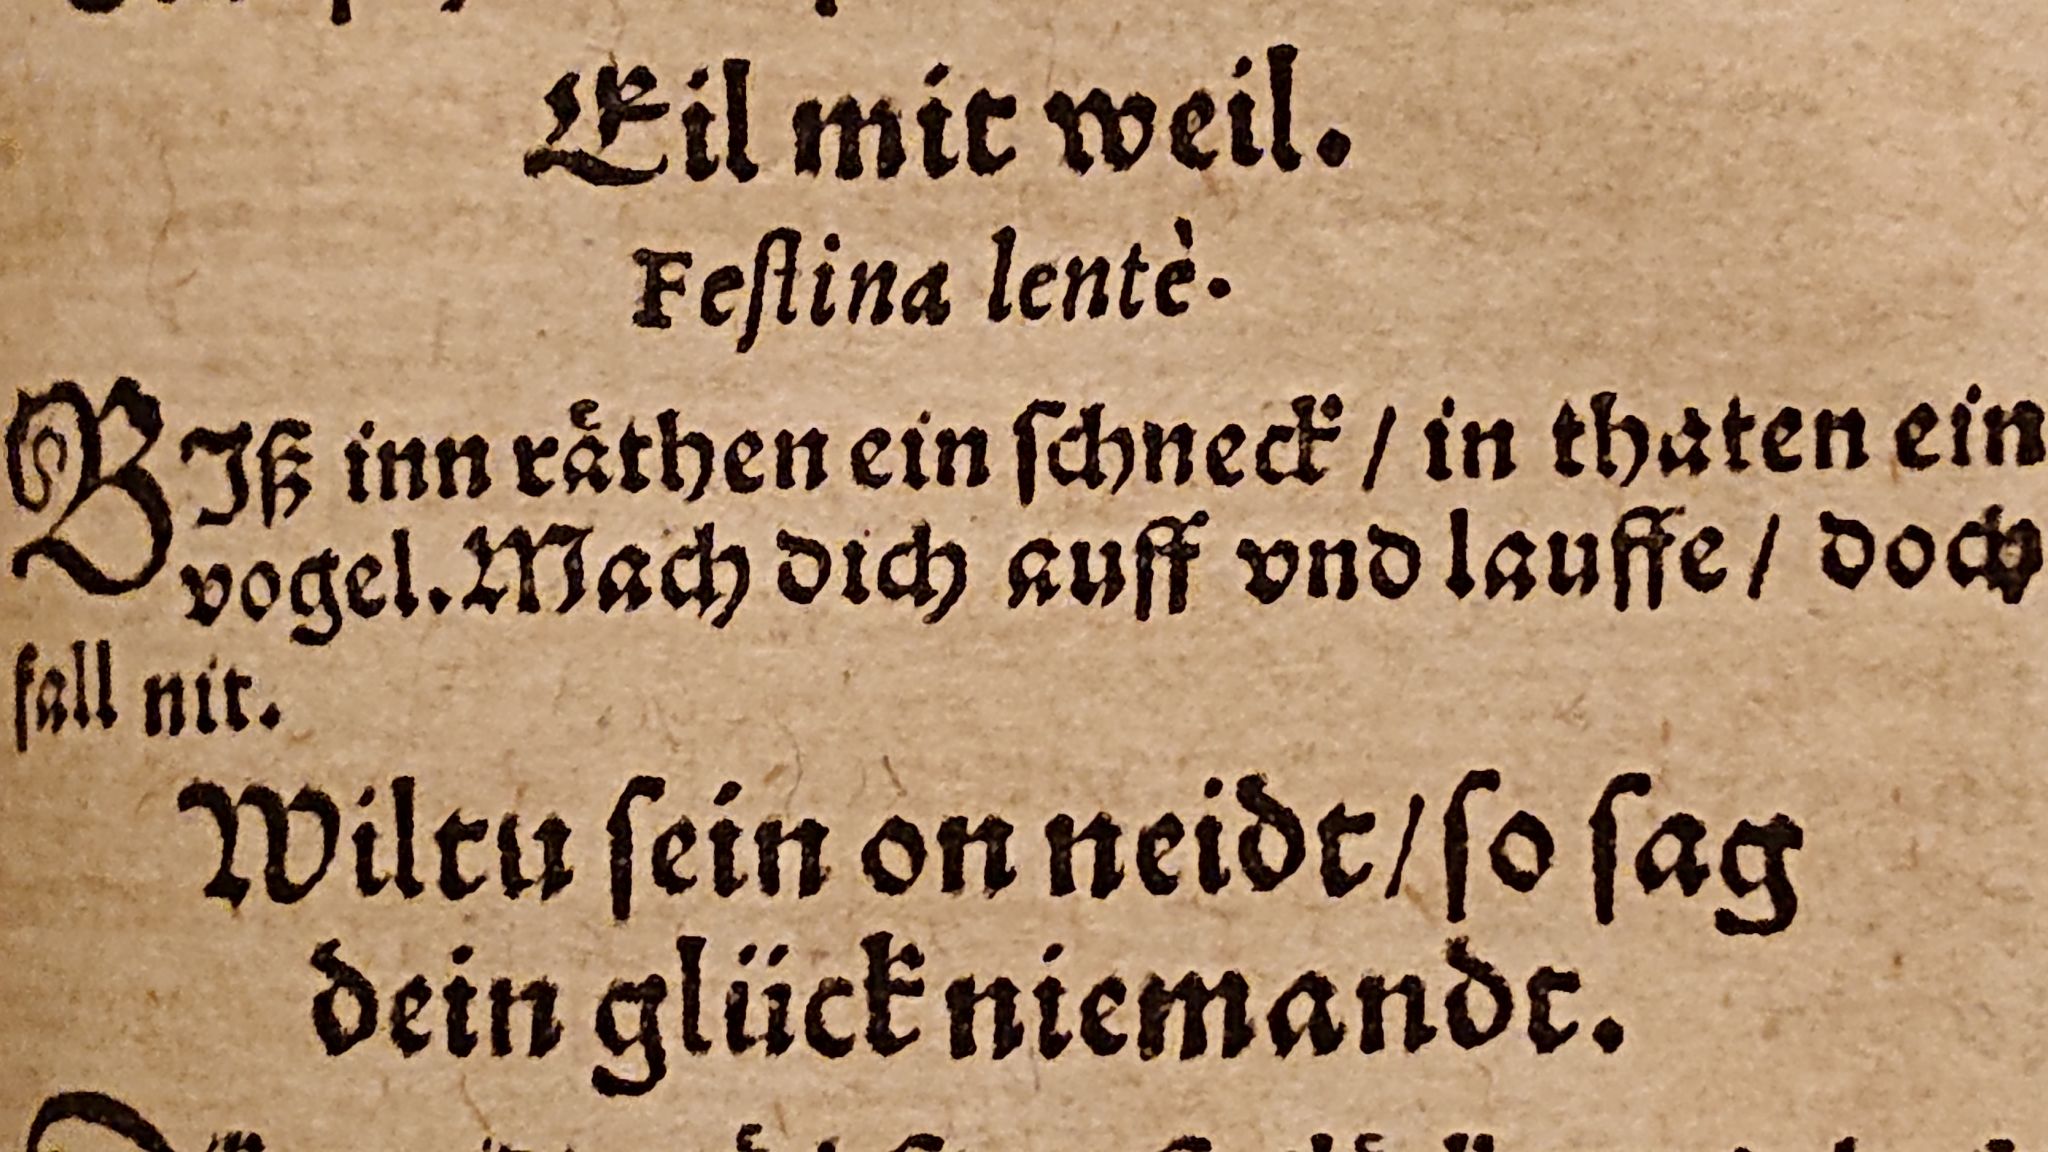 Eil mit weil.
Feſtina lentè.
BIß inn raͤthen ein ſchneck / in thaten ein
vogel. Mach dich auff vnd lauffe / doch
fall nit.
Wiltu ſein on neidt / ſo ſag
dein glück niemandt.